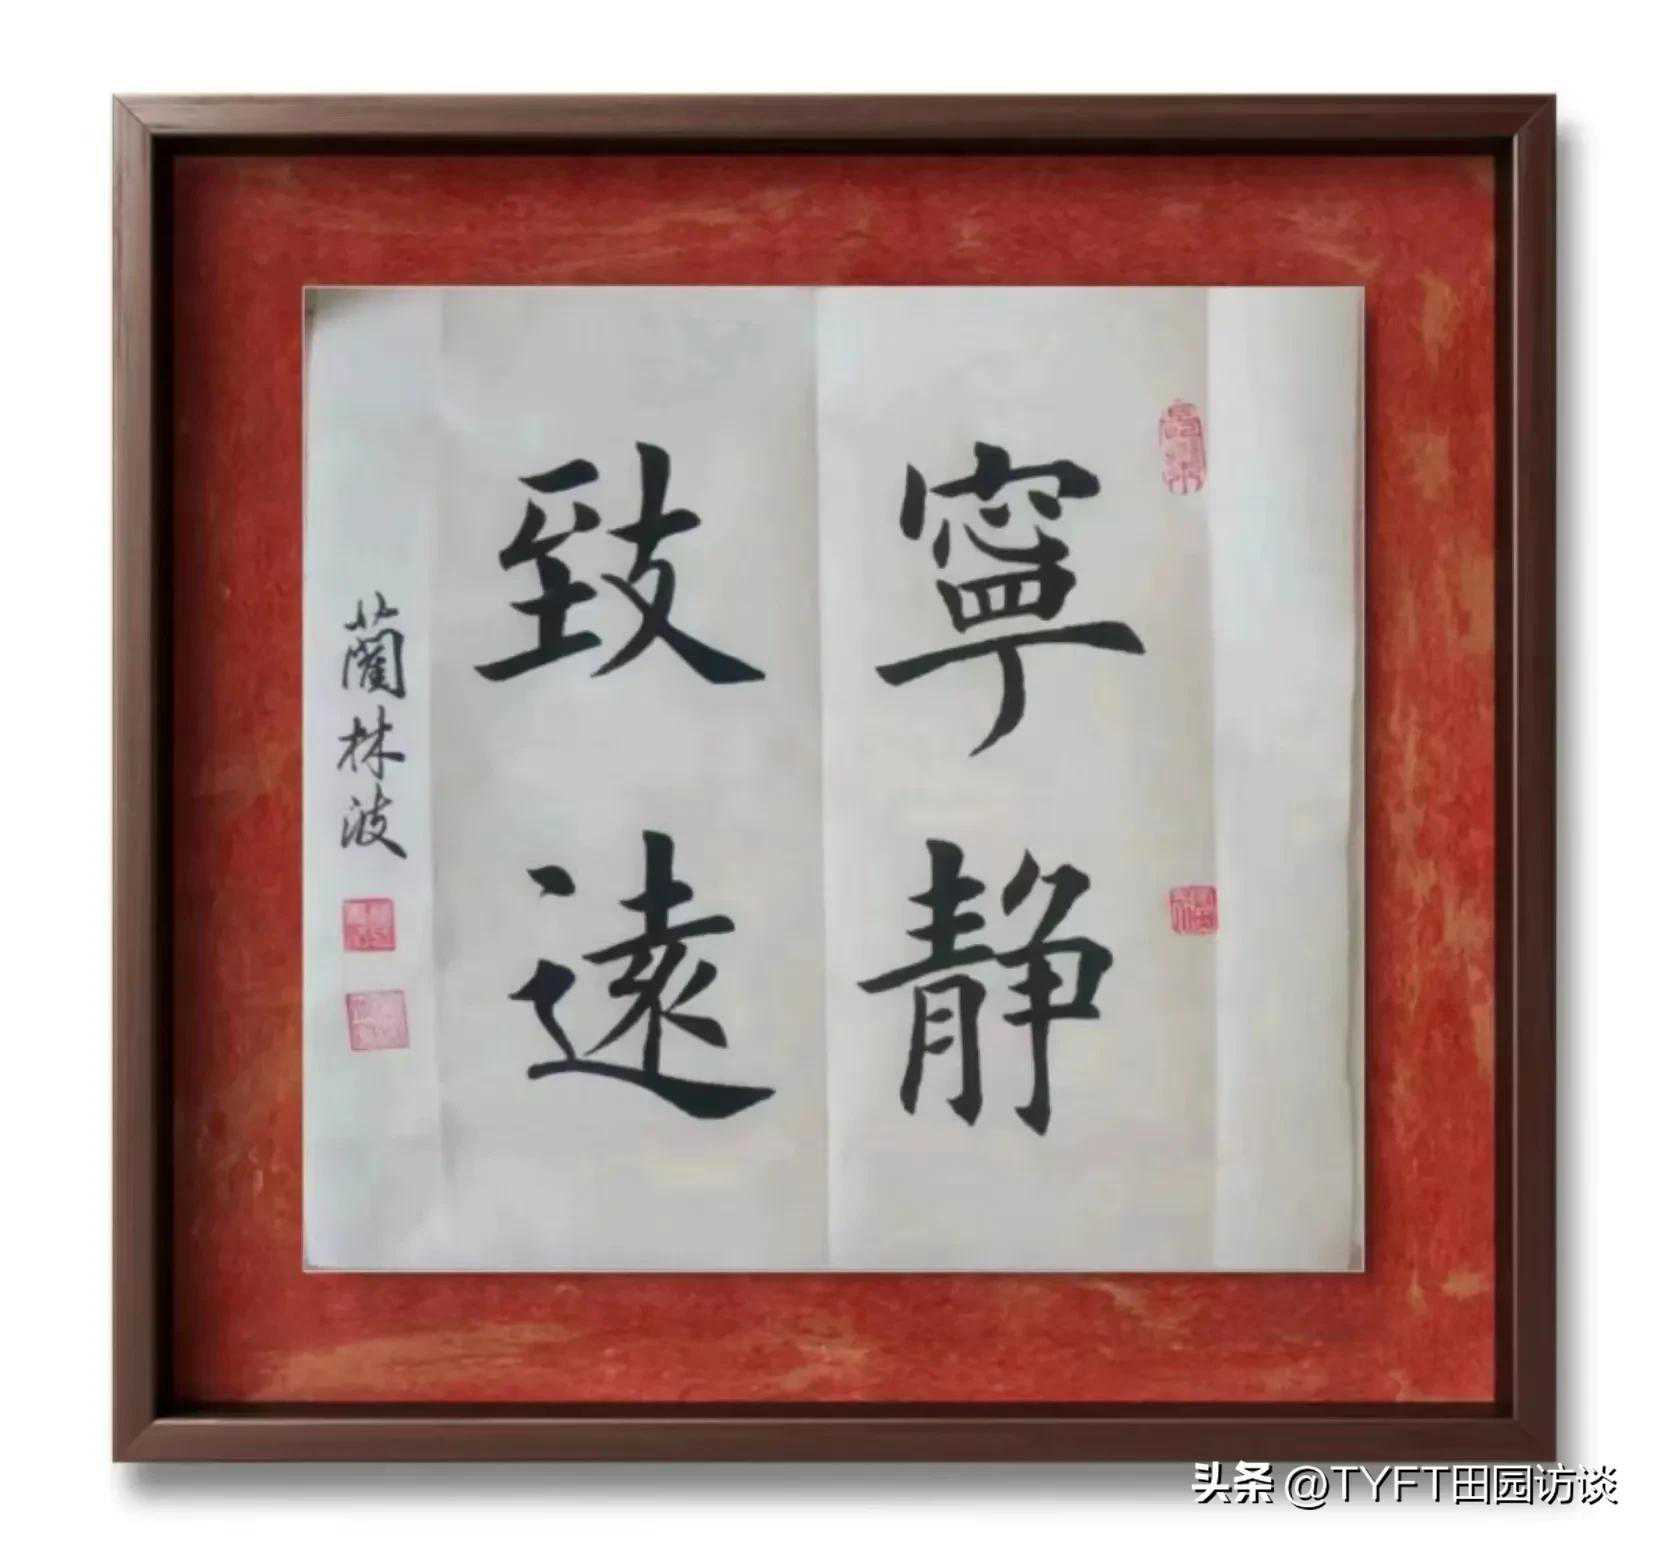 寧静
致遠
蘭林波
头条 @TYFT田园访谈